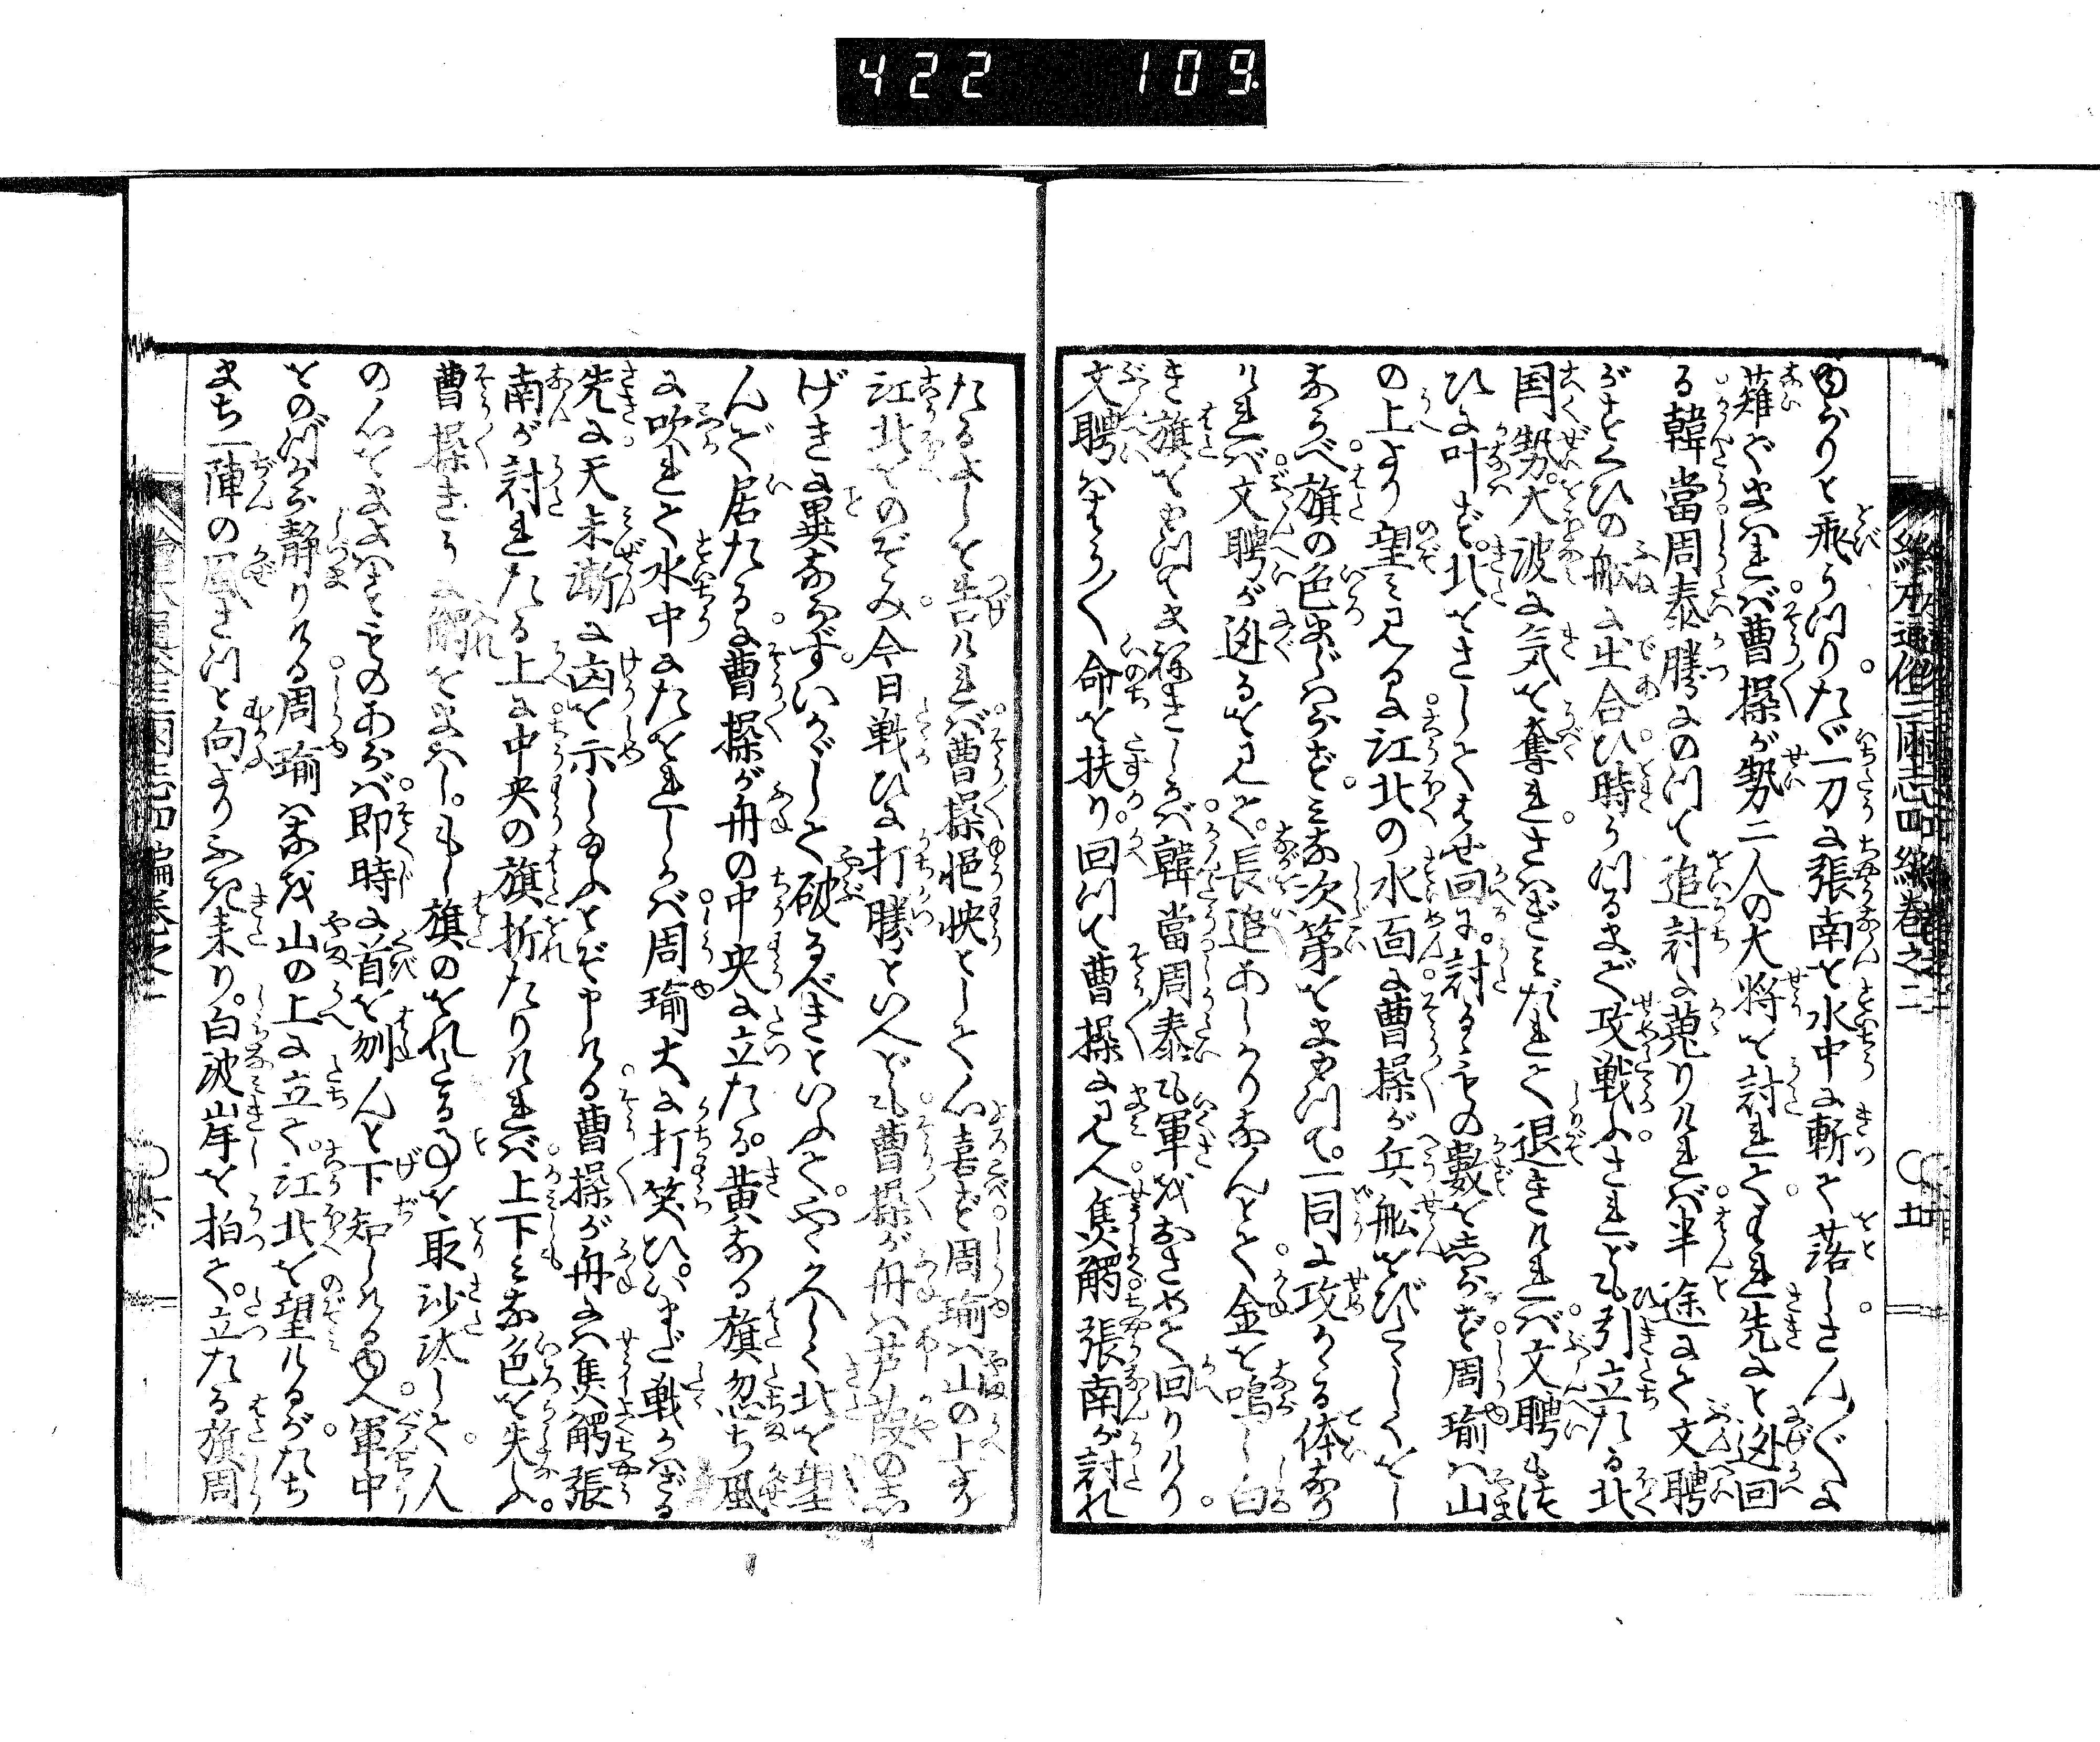 422 109
繪本通俗三國志四編卷之二 〇廿
ゆらりと飛うつりたゞ一刀に張南を水中に斬て落しさん〴〵に
薙ぐまはれば曹操が勢二人の大将を討れてわれ先にと迯回
る韓當周泰勝にのつて追討に蒐りければ半途にて文聘
がすくひの舩に出合ひ時うつるまで攻戦ふされども引立たる北
国勢大波に気を奪れさはぎみだれて退きければ文聘も
ひに叶はず北をさしてはせ回に討るゝもの數を志らず周瑜ハ山
の上より望み見るに江北の水面に曹操が兵舩をびたゝしくをし
ならべ旗の色まじはらずみな次第をまもつて一同に攻かゝる体なり
ければ文聘が迯るを見て長追あしかりなんとて金を鳴し白
き旗をもつてまねきしかば韓當周泰も軍をおさめて回りけり
文聘ハやう〳〵命を扶り回つて曹操に見え焦觸張南が討れ
たるよしを告ければ曹操悒怏として心喜ばず周瑜ハ山の上より
江北をのぞみ今日戦ひに打勝といへども曹操が舟ハ芦葭の志
げきに異ならずいかゞして破るべきといふてやゝ久しく北を望
んで居たるに曹操が舟の中央に立たる黄なる旗忽ち風
に吹れて水中にたをれしかば周瑜大に打笑ひいまだ戦はざる
先に天未漸に凶を示し玉ふとぞ申ける曹操が舟にハ焦觸張
南が討れたる上に中央の旗折たりければ上下みな色を失ふ
曹操きうに觸をまはしもし旗のをれたる事を取沙汰して人
の心をまよはすものあらば即時に首を刎んと下知しけるゆへ軍中
そのゝち静りける周瑜ハ常に山の上に立て江北を望けるがたち
まち一陣の風さつと向より吹来り白波岸を拍て立たる旗周